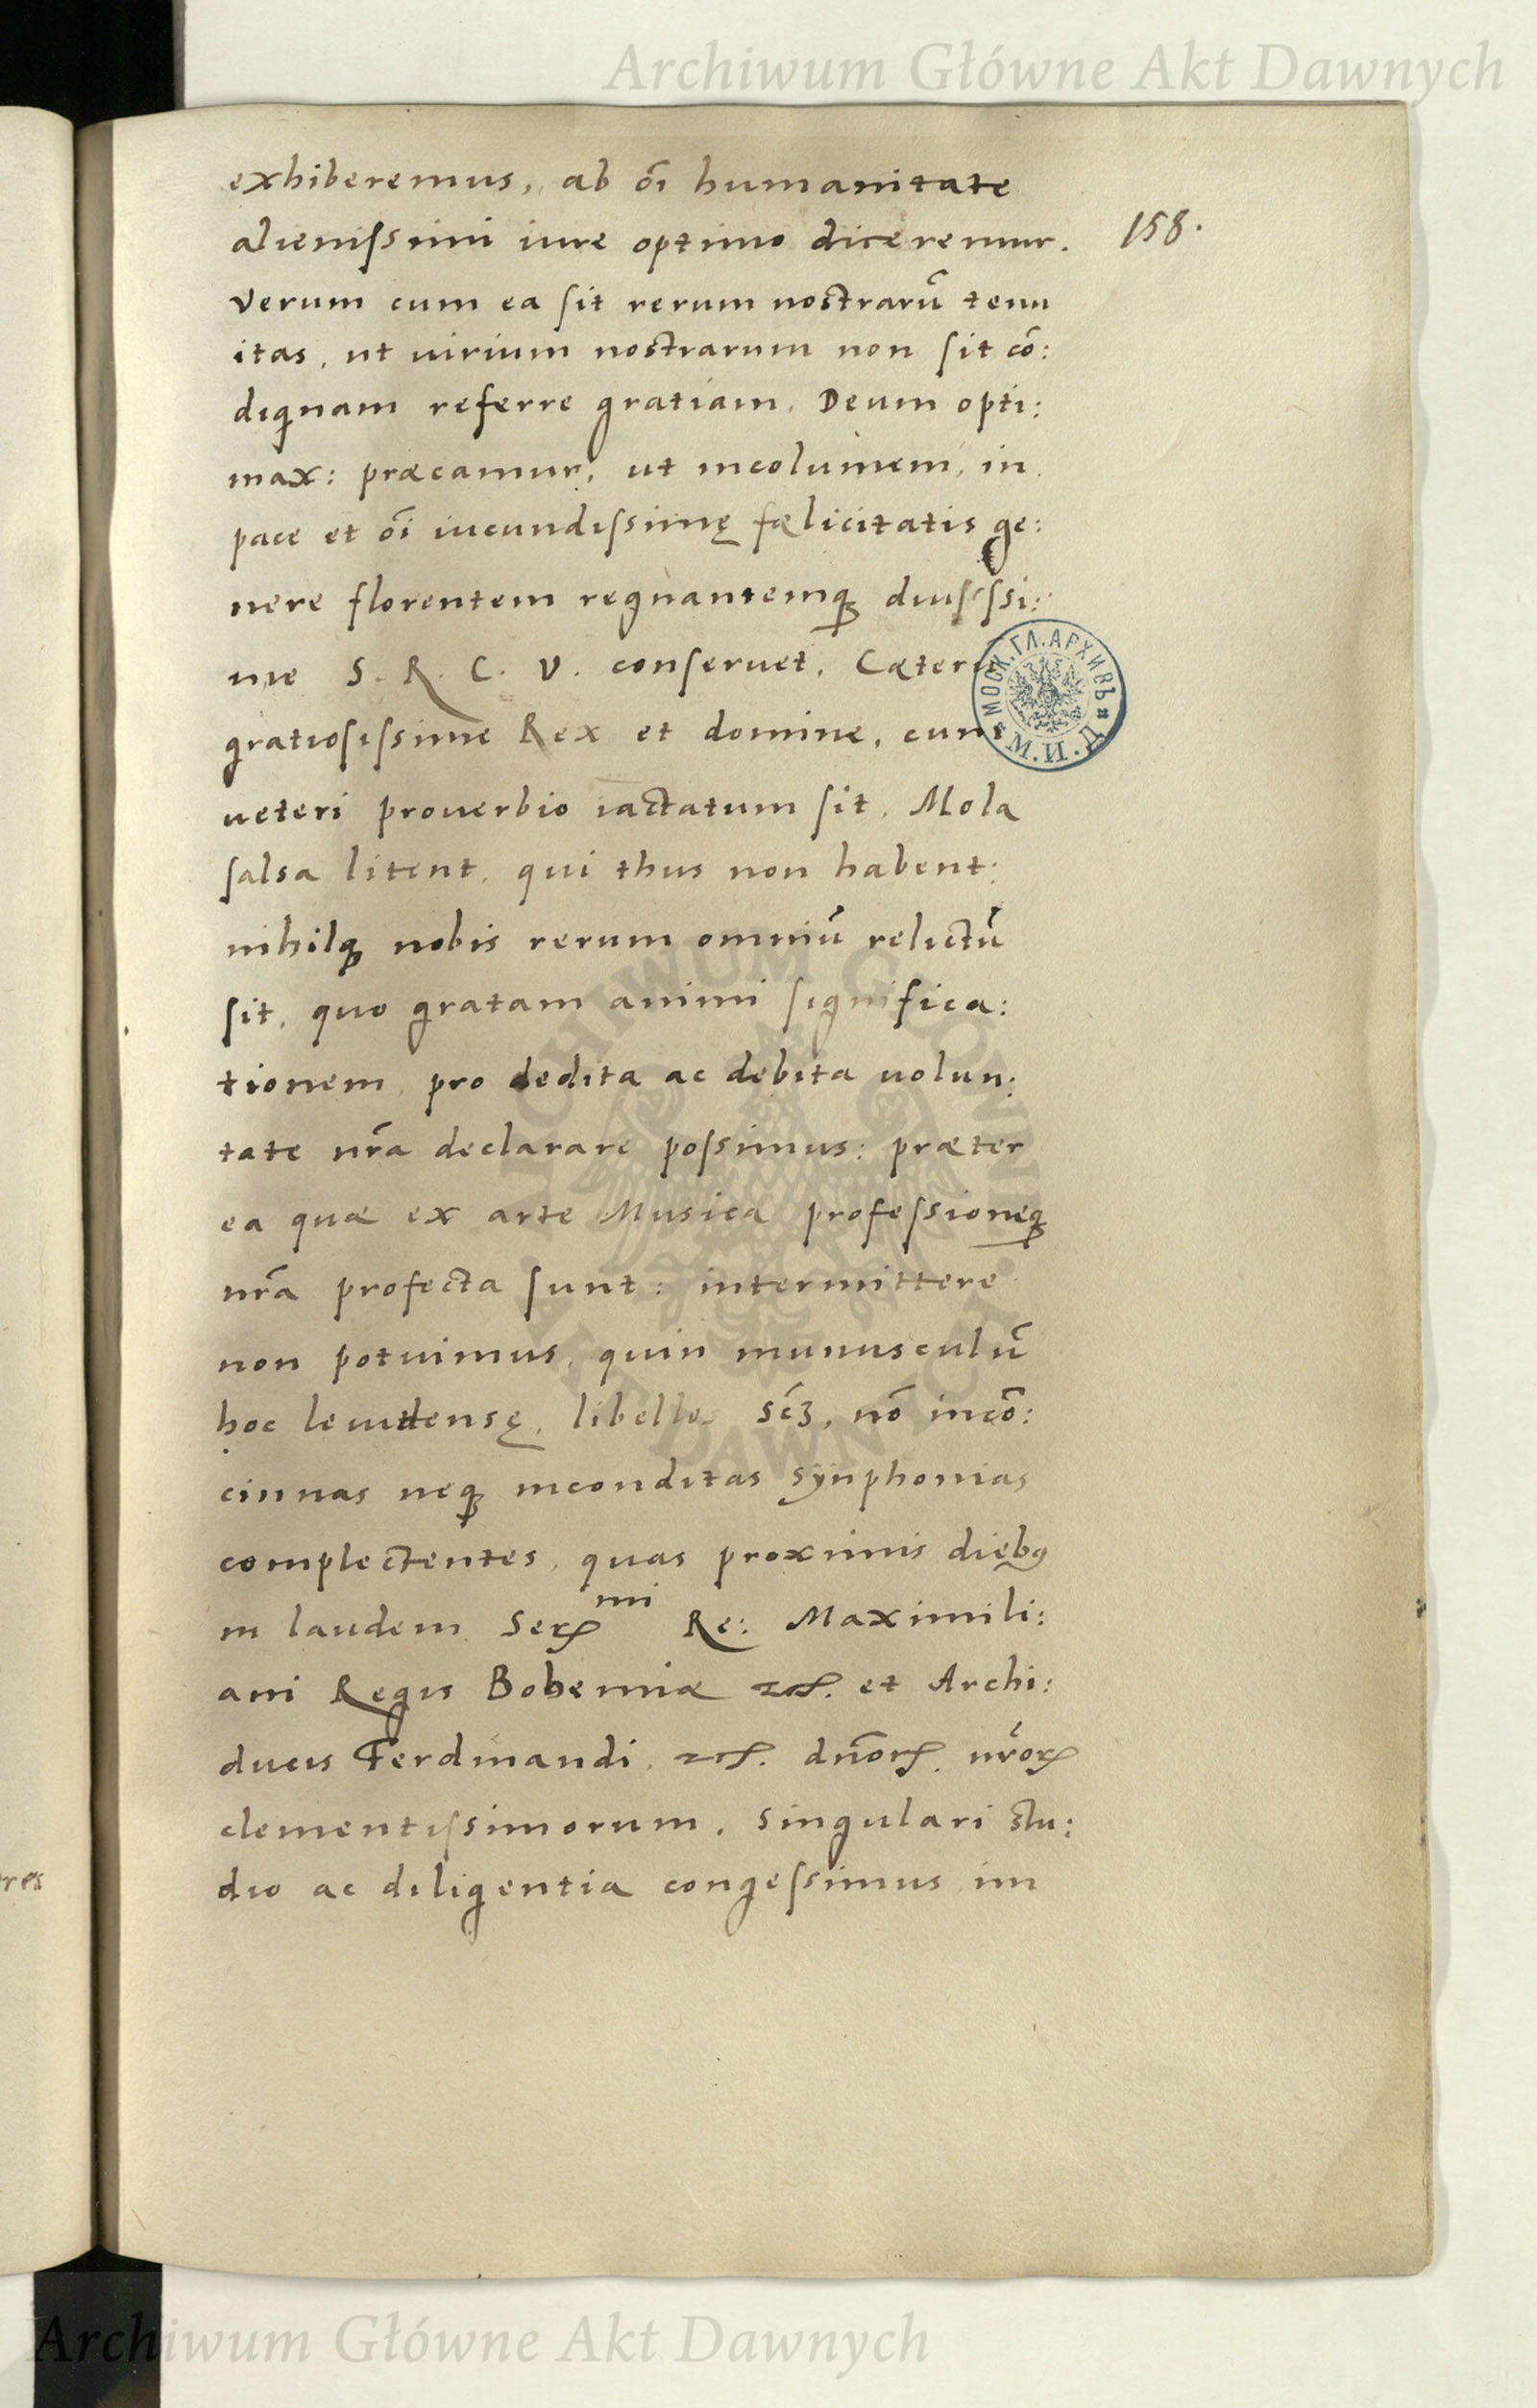 Archiwum Główne Akt Dawnych
exhiberemus, ab oı̄ humanitate
alieniſsimi iure optimo diceremur.
158.
verum cum ea ſit rerum noſtrarū tenu
itas, ut uirium noſtrarum non ſit cō:
dignam referre gratiam, Deum opti:
max: præcamur, ut incolumem, in
pace et oı̄ iucundiſsimę fælicitatis ge:
nere florentem regnantemq̣ diutiſsi:
me S. R. C. V. conſeruet. Cæter
gratioſiſsime Rex et domine, cum
МОСК.ГЛ.АРХИВЪ
М.И.Д.
ueteri prouerbio iactatum ſit, Mola
ſalsa litent, qui thus non habent:
nihilq̣ nobis rerum omniū relictū
ſit, quo gratam animi ſignifica:
tionem pro dedita ac debita uolun:
tate nr̄a declarare poſsimus: præter
ea quæ ex arte Musica profeſsioneq̣
nr̄a profecta ſunt: intermittere
non potuimus, quin munusculū
hoc leuidensę, libellos sc̄ȝ, nō incō:
cinnas neq̣ inconditas synphonias
complectentes, quas proximis dieb9
in laudem Serꝫ mi Re: Maximili:
ani Regis Bohemiæ ꝛcꝭ. et Archi:
ducis Ferdinandi, ꝛcꝭ. dn̄orꝝ nr̄orꝝ
clementiſsimorum, singulari ſtu:
dio ac diligentia congeſsimus im
ARCHIWUM GŁÓWNE AKT DAWNYCH
Archiwum Główne Akt Dawnych